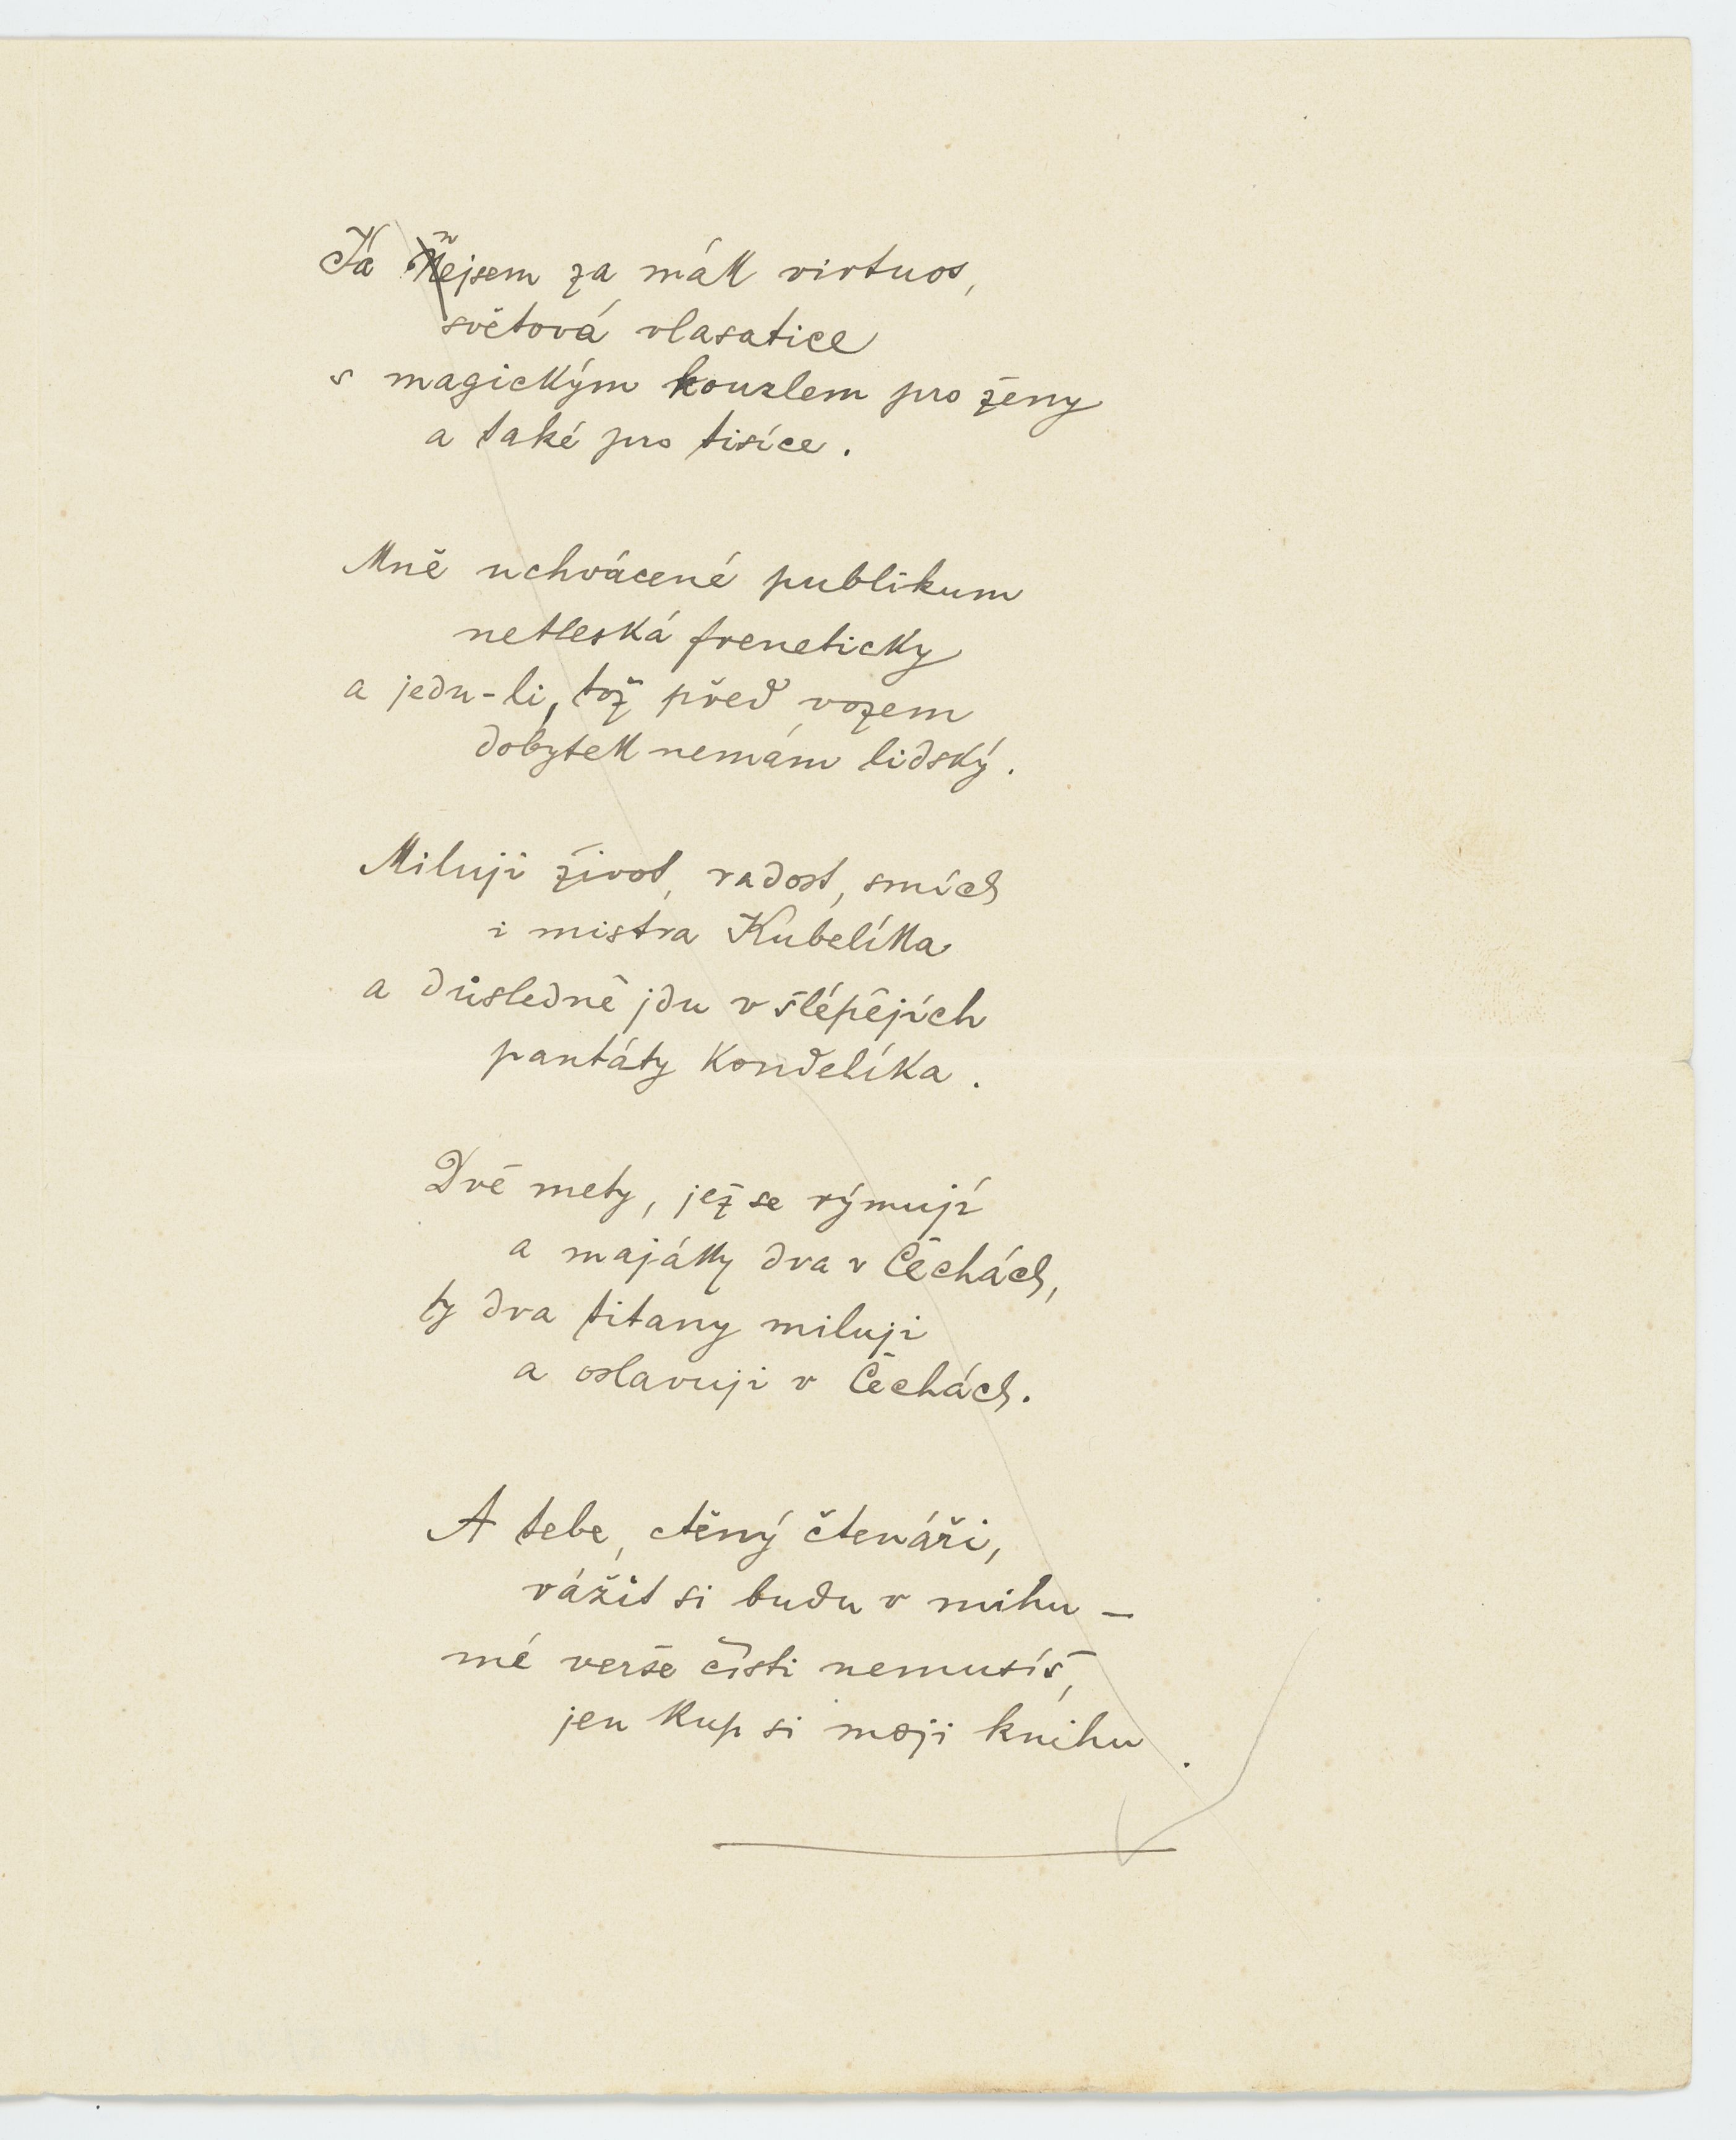 Já nejsem za mák virtuos,
světová vlasatice
s magickým kouzlem pro ženy
a také pro tisíce.
Mně uchvácené publikum
netleská freneticky
a jedu-li, tož před vozem
dobytek nemám lidský.
Miluji život, radost, smích
i mistra Kubelíka
a důsledně jdu v šlépějích
pantáty Kondelíka.
Dvě mety, jež se rýmují
a majátky dva v Čechách,
ty dva titany miluji
a oslavuji v Čechách.
A tebe, ctěný čtenáři,
vážit si budu v mihu –
mé verše čísti nemusíš,
jen kup si moji knihu.